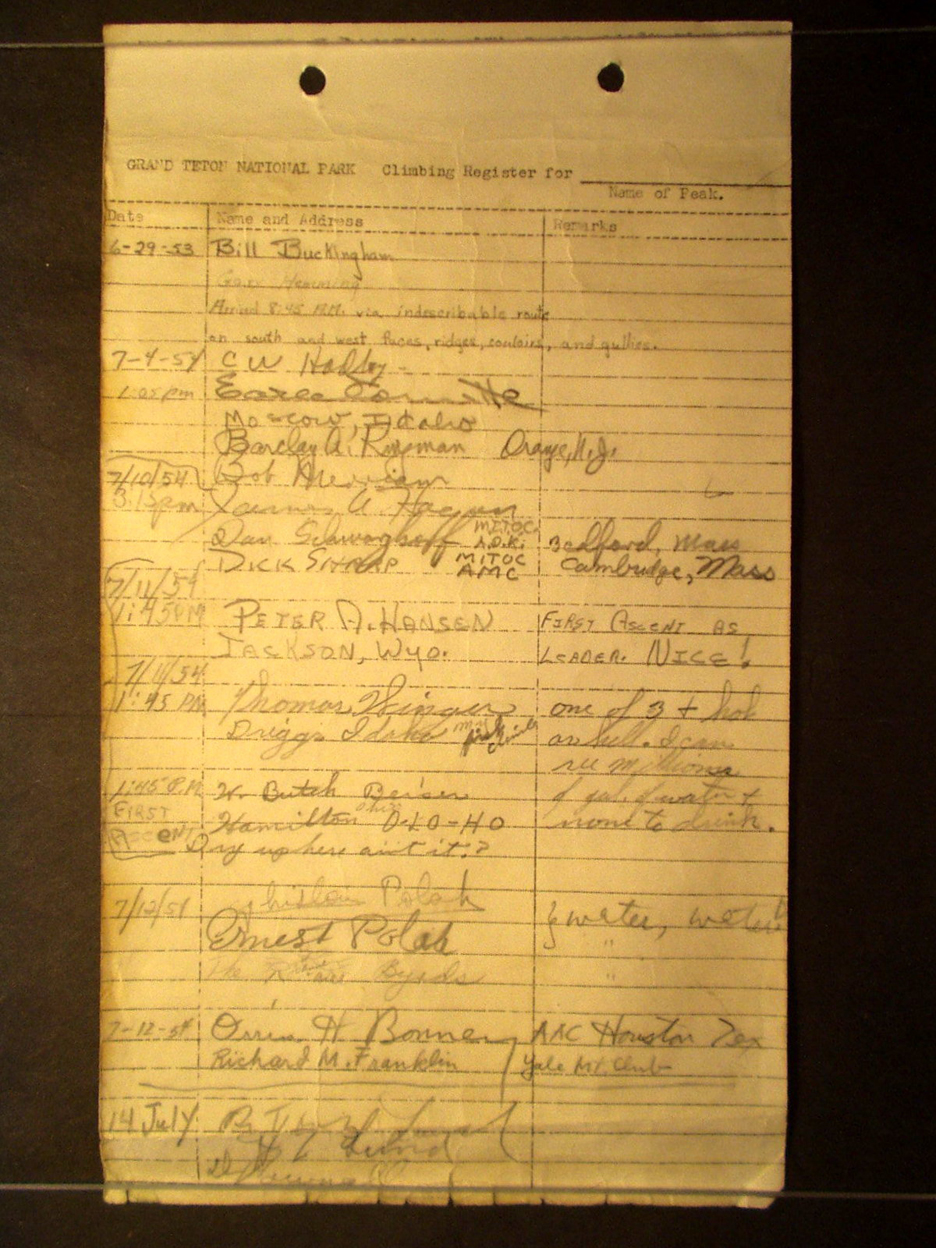 GRAND TETON NATIONAL PARK Climbing Register for
Name of Peak.
Date Name and Address Remarks
6-29-53 Bill Buckingham
Gary Hemming
Arrived 8:45 P.M. via indescribable route
on south and west faces, ridges, couloirs, and gullies.
7-4-54 C W Hadley
1:05 pm
Moscow, Idaho
Barclay A. Orange, N.J.
7/10/54 Bob Merriam
3:15pm
MITOC
Dan A.D.K. Bedford, Mass
DICK MITOC Cambridge, Mass
AMC
7/11/54
1:45PM PETER A. HANSEN FIRST ASCENT AS
JACKSON, WYO. LEADER. NICE!
7/11/54
1:45 PM Thomas Winger one of 3 + hot
Driggs Idaho as hell. I can
see millions
1:45 P.M W. Butch of gal. of water +
FIRST Hamilton Ohio O-10-HO none to drink.
ACCENT Dry up here ain't it.?
7/12/54 Polak
Ernest Polak } water, water
The Byrds
7-12-54 Orrin H Bonney AAC Houston Tex
Richard M. Franklin Yale Mt. Club
14 July